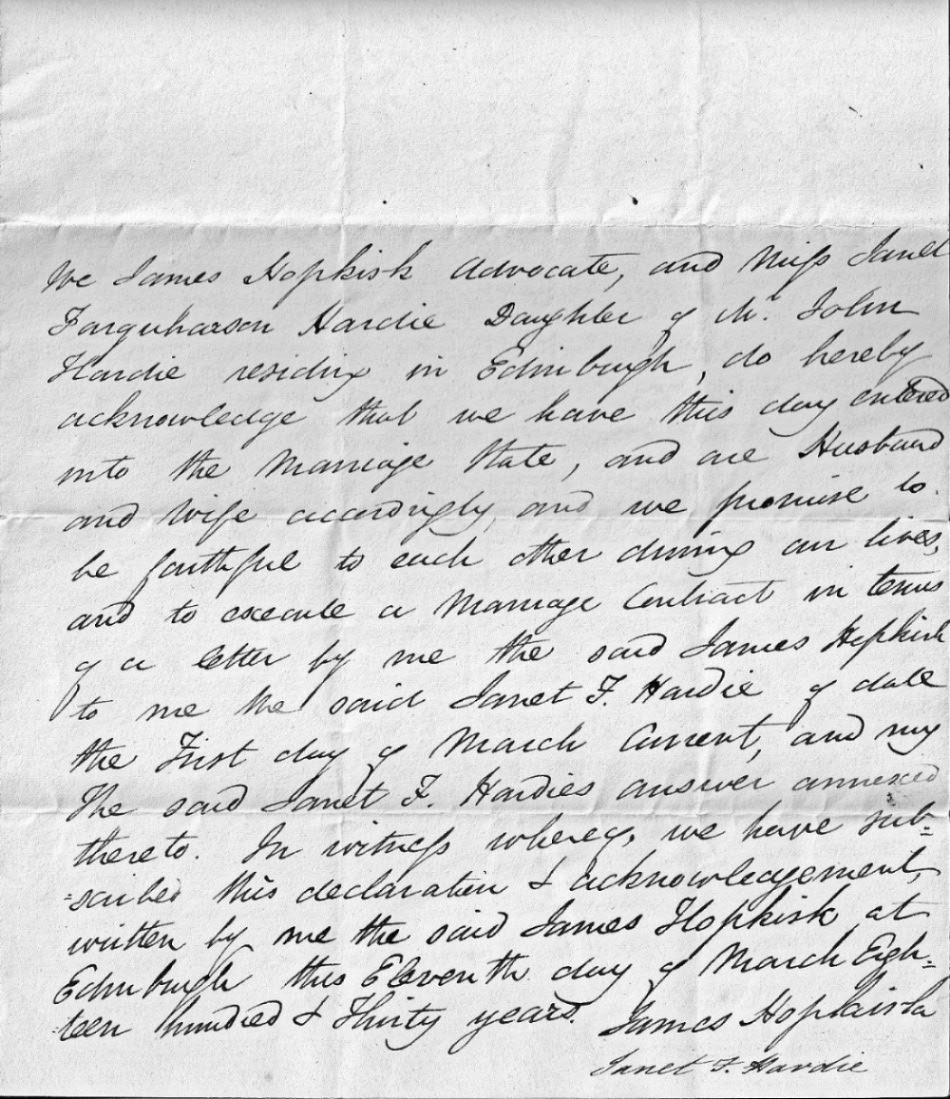 We James Hopkirk Advocate, and Miss Janet
Farquharson Hardie Daughter of Mr. John
Hardie residing in Edinburgh, do hereby
acknowledge that we have this day entered
into the Marriage State, and are Husband
and Wife accordingly, and we promise to
be faithful to each other during our lives,
and to execute a Marriage Contract in terms
of a letter by me the said James Hopkirk
to me the said Janet F. Hardie of date
the First day of March Current, and my
the said Janet F. Hardies answer annexed
thereto. In witness whereof, we have sub=
=scribed this declaration & acknowledgement,
written by me the said James Hopkirk at
Edinburgh this Eleventh day of March Eigh=
=teen hundred & Thirty years. James Hopkirk
Janet F. Hardie